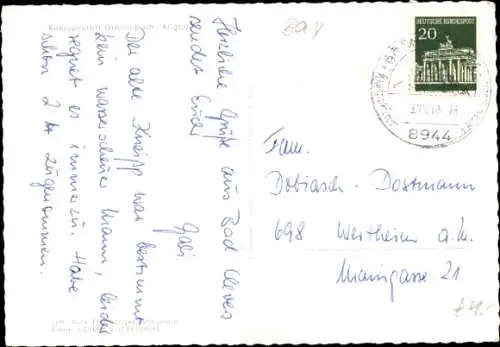 Kneippkurort Grönenbach · Allgäu
BaY
DEUTSCHE BUNDESPOST
20
8944
Herzliche Grüße aus Bad Clevers
sendet Euer
Gabi
Der alte Kneipp war bestimmt
kein wasserscheuer Mann, leider
regnet es immerzu. Habe
schon 2 ℔ zugenommen.
Fam.
Dobiasch-Dostmann
698 Wertheim a.M.
Maingasse 21